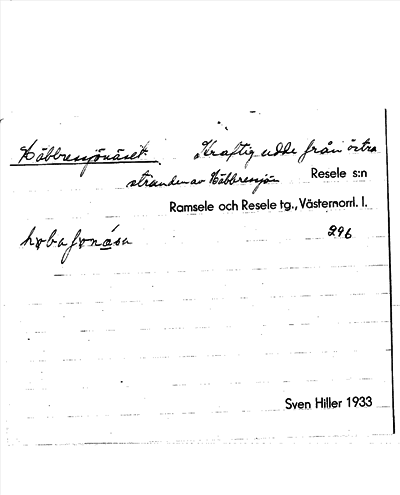 Häbbresjönäset Kraftig udde från östra
stranden av Häbbresjön Resele s:n
Ramsele och Resele tg., Västernorrl. l.
296
Sven Hiller 1933